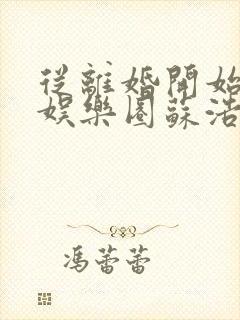 從離婚開始
娛樂圈蘇浩
馮蕾蕾